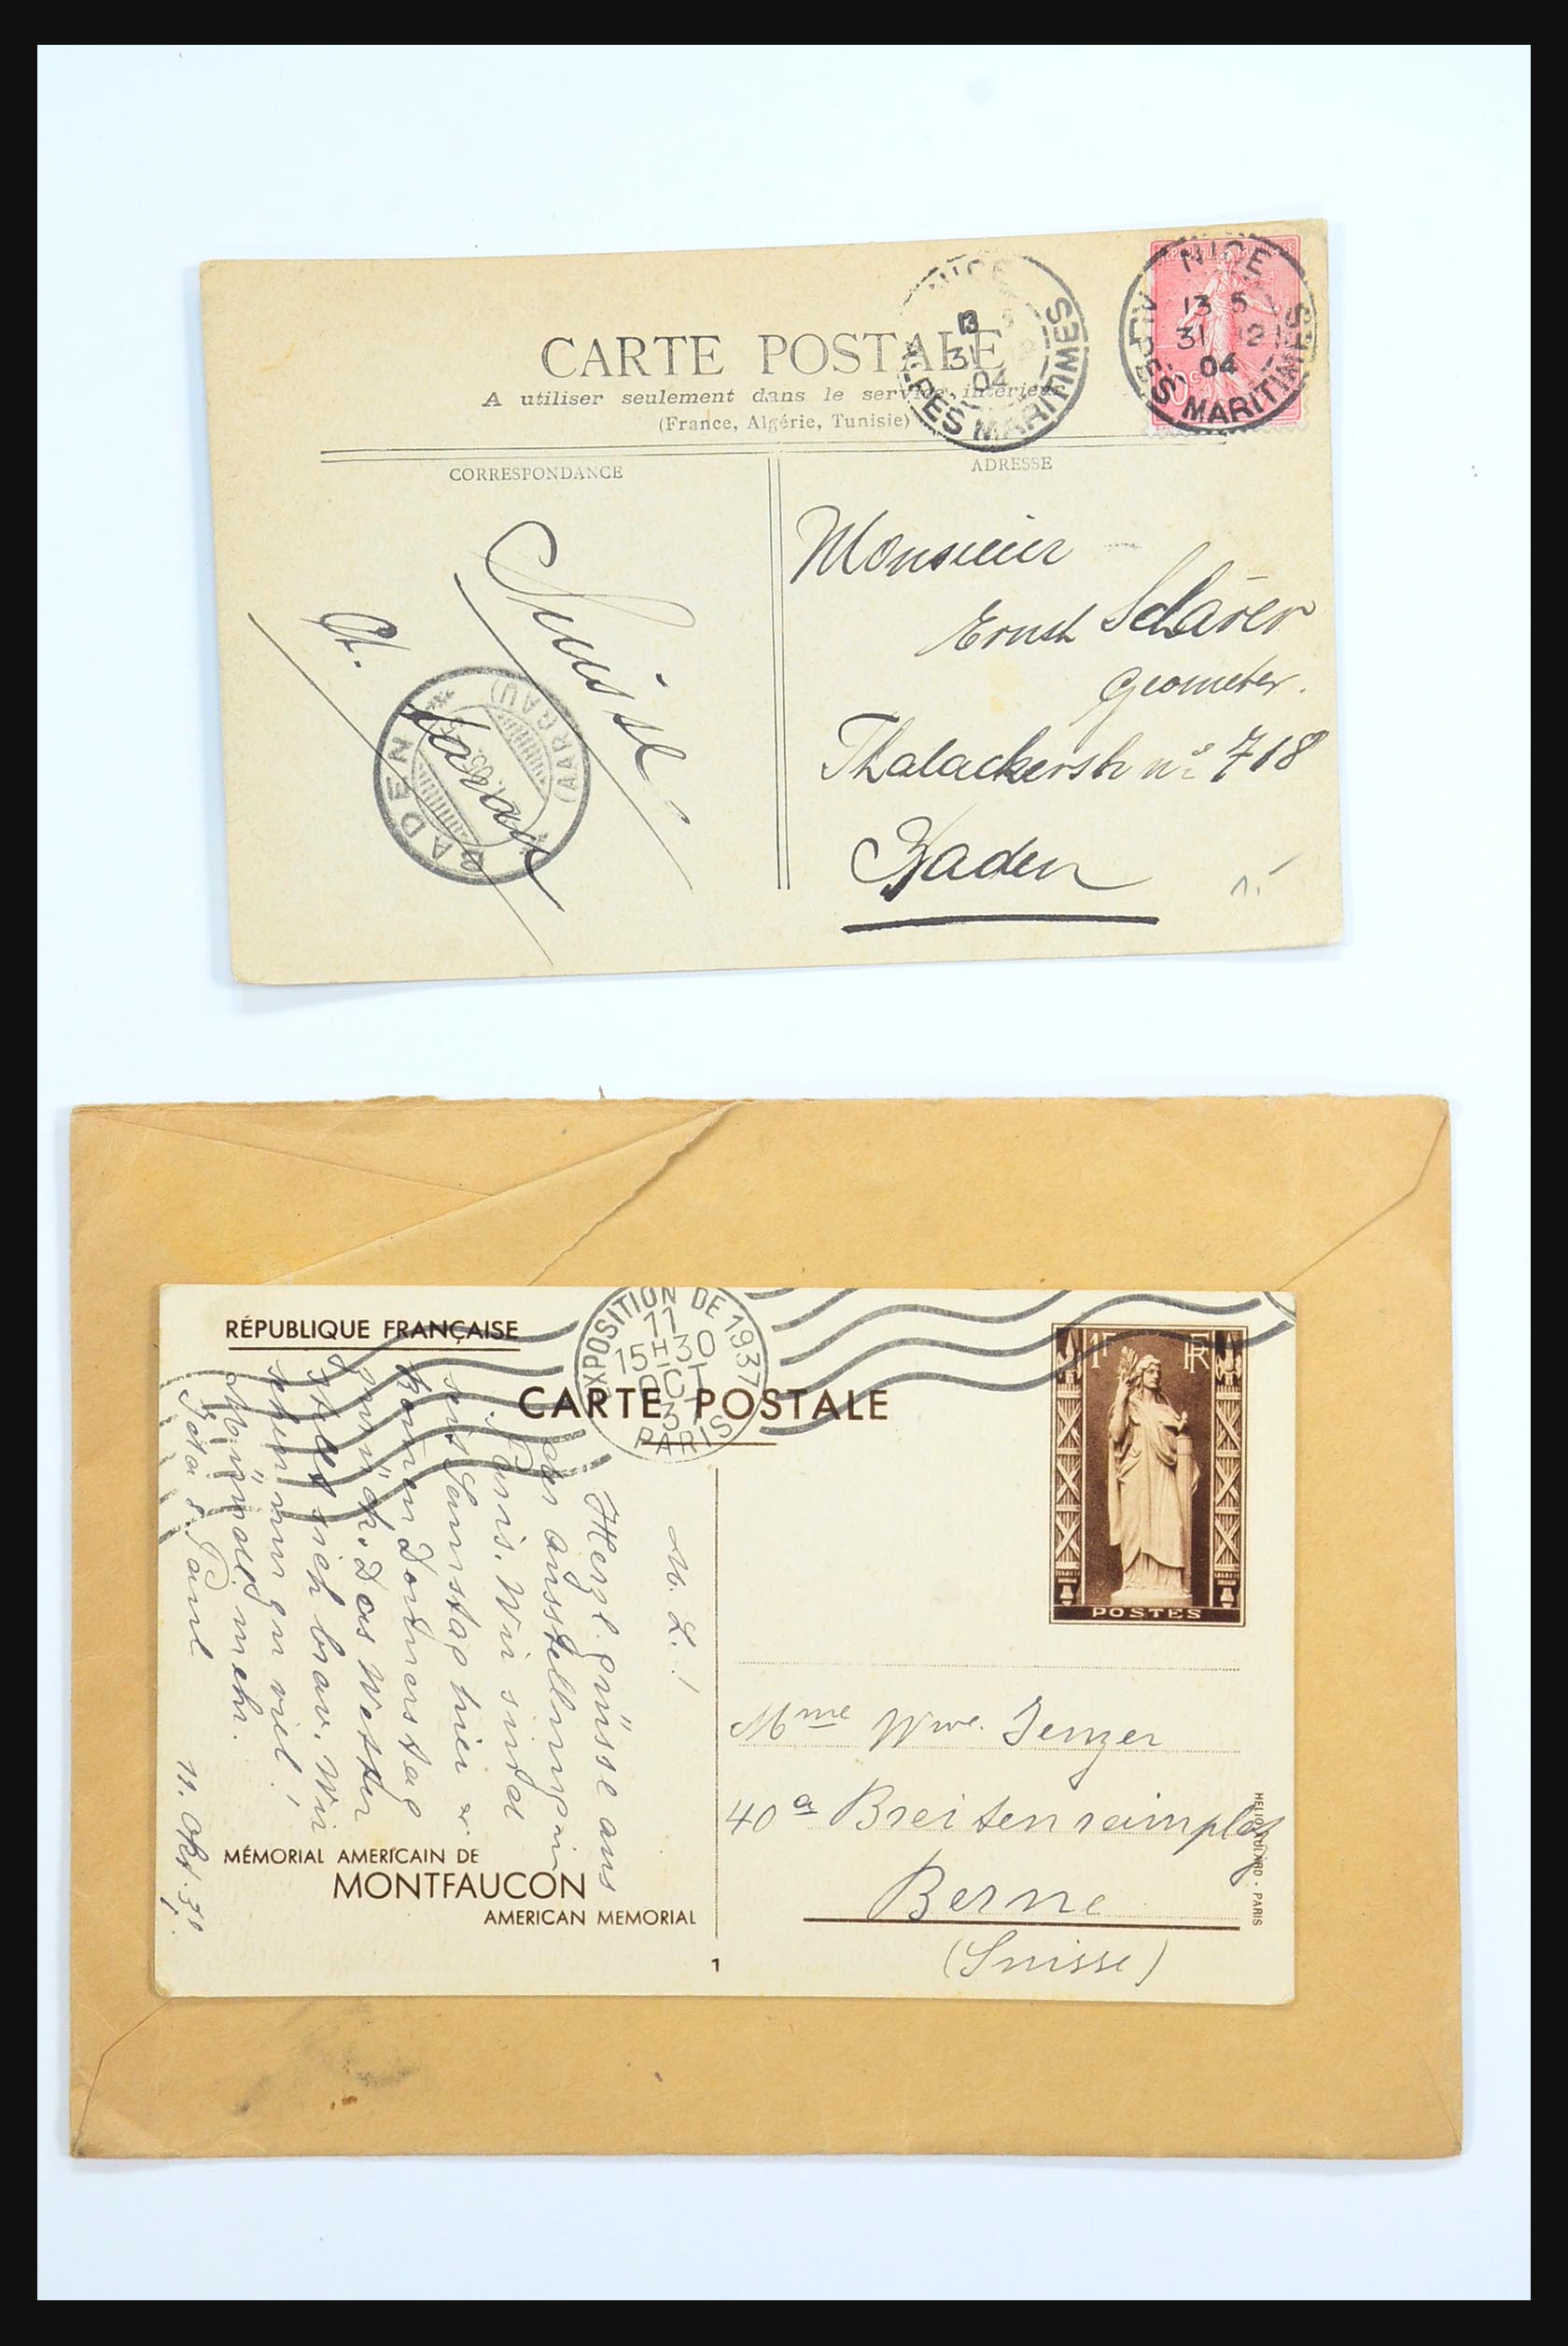 CARTE POSTALE
A utiliser seulement dans le service intérieur
(France, Algérie, Tunisie)
CORRESPONDANCE
ADRESSE
NICE
13
31
04
ALPES MARITIMES
NICE
13 5
31 12
04
ALPES MARITIMES
Suisse
Ct.
BADEN
(AARGAU)
Monsieur
Ernst Schärer
Geometer.
Thalackerstr no 718
Baden
1.-
RÉPUBLIQUE FRANÇAISE
CARTE POSTALE
EXPOSITION DE 1937
11
15H30
OCT
37
PARIS
1F
RF
POSTES
M. L. !
Herzl. Grüsse aus
der Ausstellung in
Paris. Wir sind
seit Samstag hier u.
kommen Donnerstag
zurück. Das Wetter
hält sich brav. Wir
sehen nun gar viel!
Mündl. mehr.
Paul
11. Okt. 37.
MÉMORIAL AMERICAIN DE
MONTFAUCON
AMERICAN MEMORIAL
1
Mme Wwe. Jenzer
40a Breitenrainplatz
Berne
(Suisse)
HELIO VAUGIRARD - PARIS